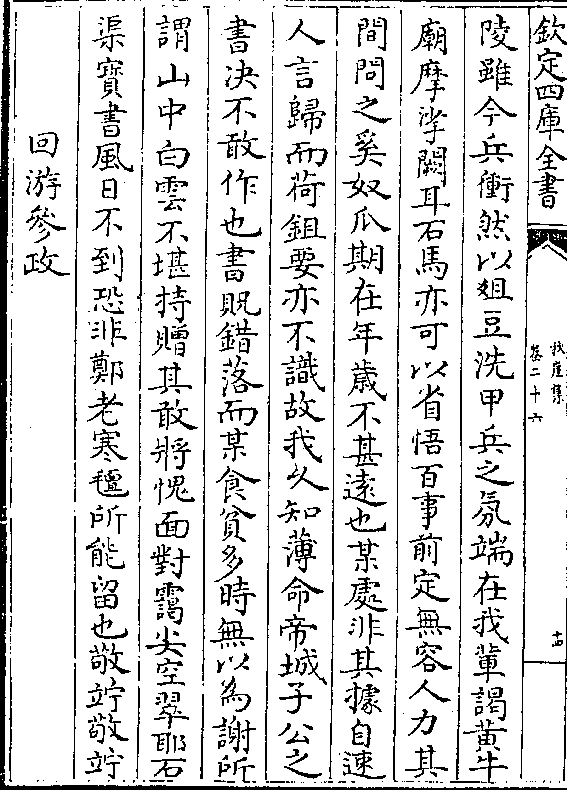 欽定四庫全書
秋崖集
卷二十六
十四
陵雖今兵衝然以俎豆洗甲兵之氛端在我輩謁黃牛
廟摩挲闕耳石馬亦可以省悟百事前定無容人力其
間問之奚奴瓜期在年歲不甚遠也某處非其據自速
人言歸而荷鉏要亦不識故我久知薄命帝城子公之
書决不敢作也書貺錯落而某食貧多時無以為謝所
謂山中白雲不堪持贈其敢將愧面對靄尖空翠耶石
渠寶書風日不到恐非鄭老寒氊所能留也敬竚敬竚
回游參政